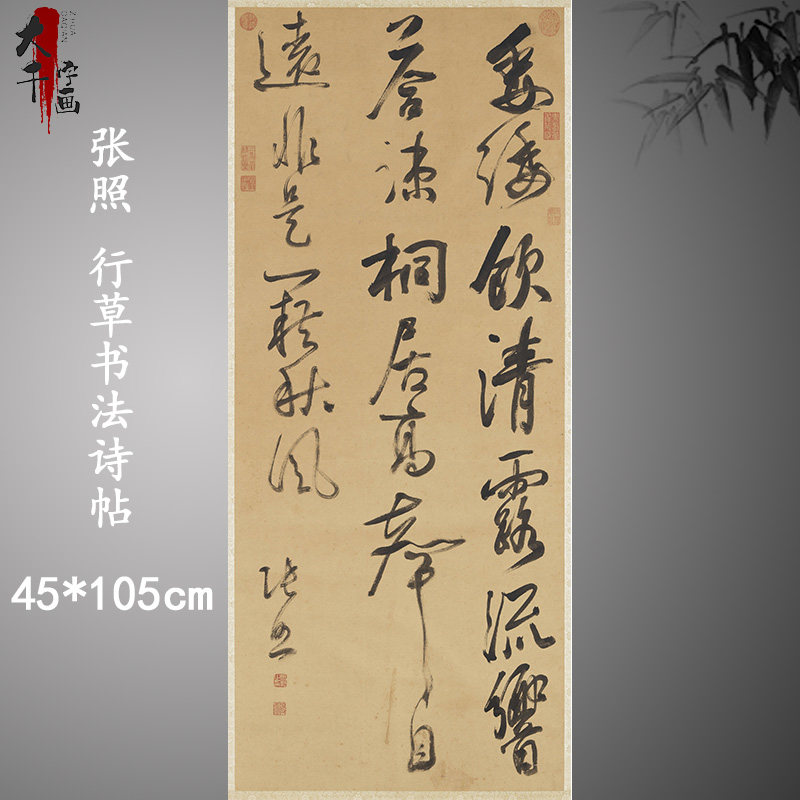 大千
字画
张照 行草书法诗帖
45*105cm
垂緌飲清露流響
荅疎桐居高聲自
遠非是藉秋風
張照